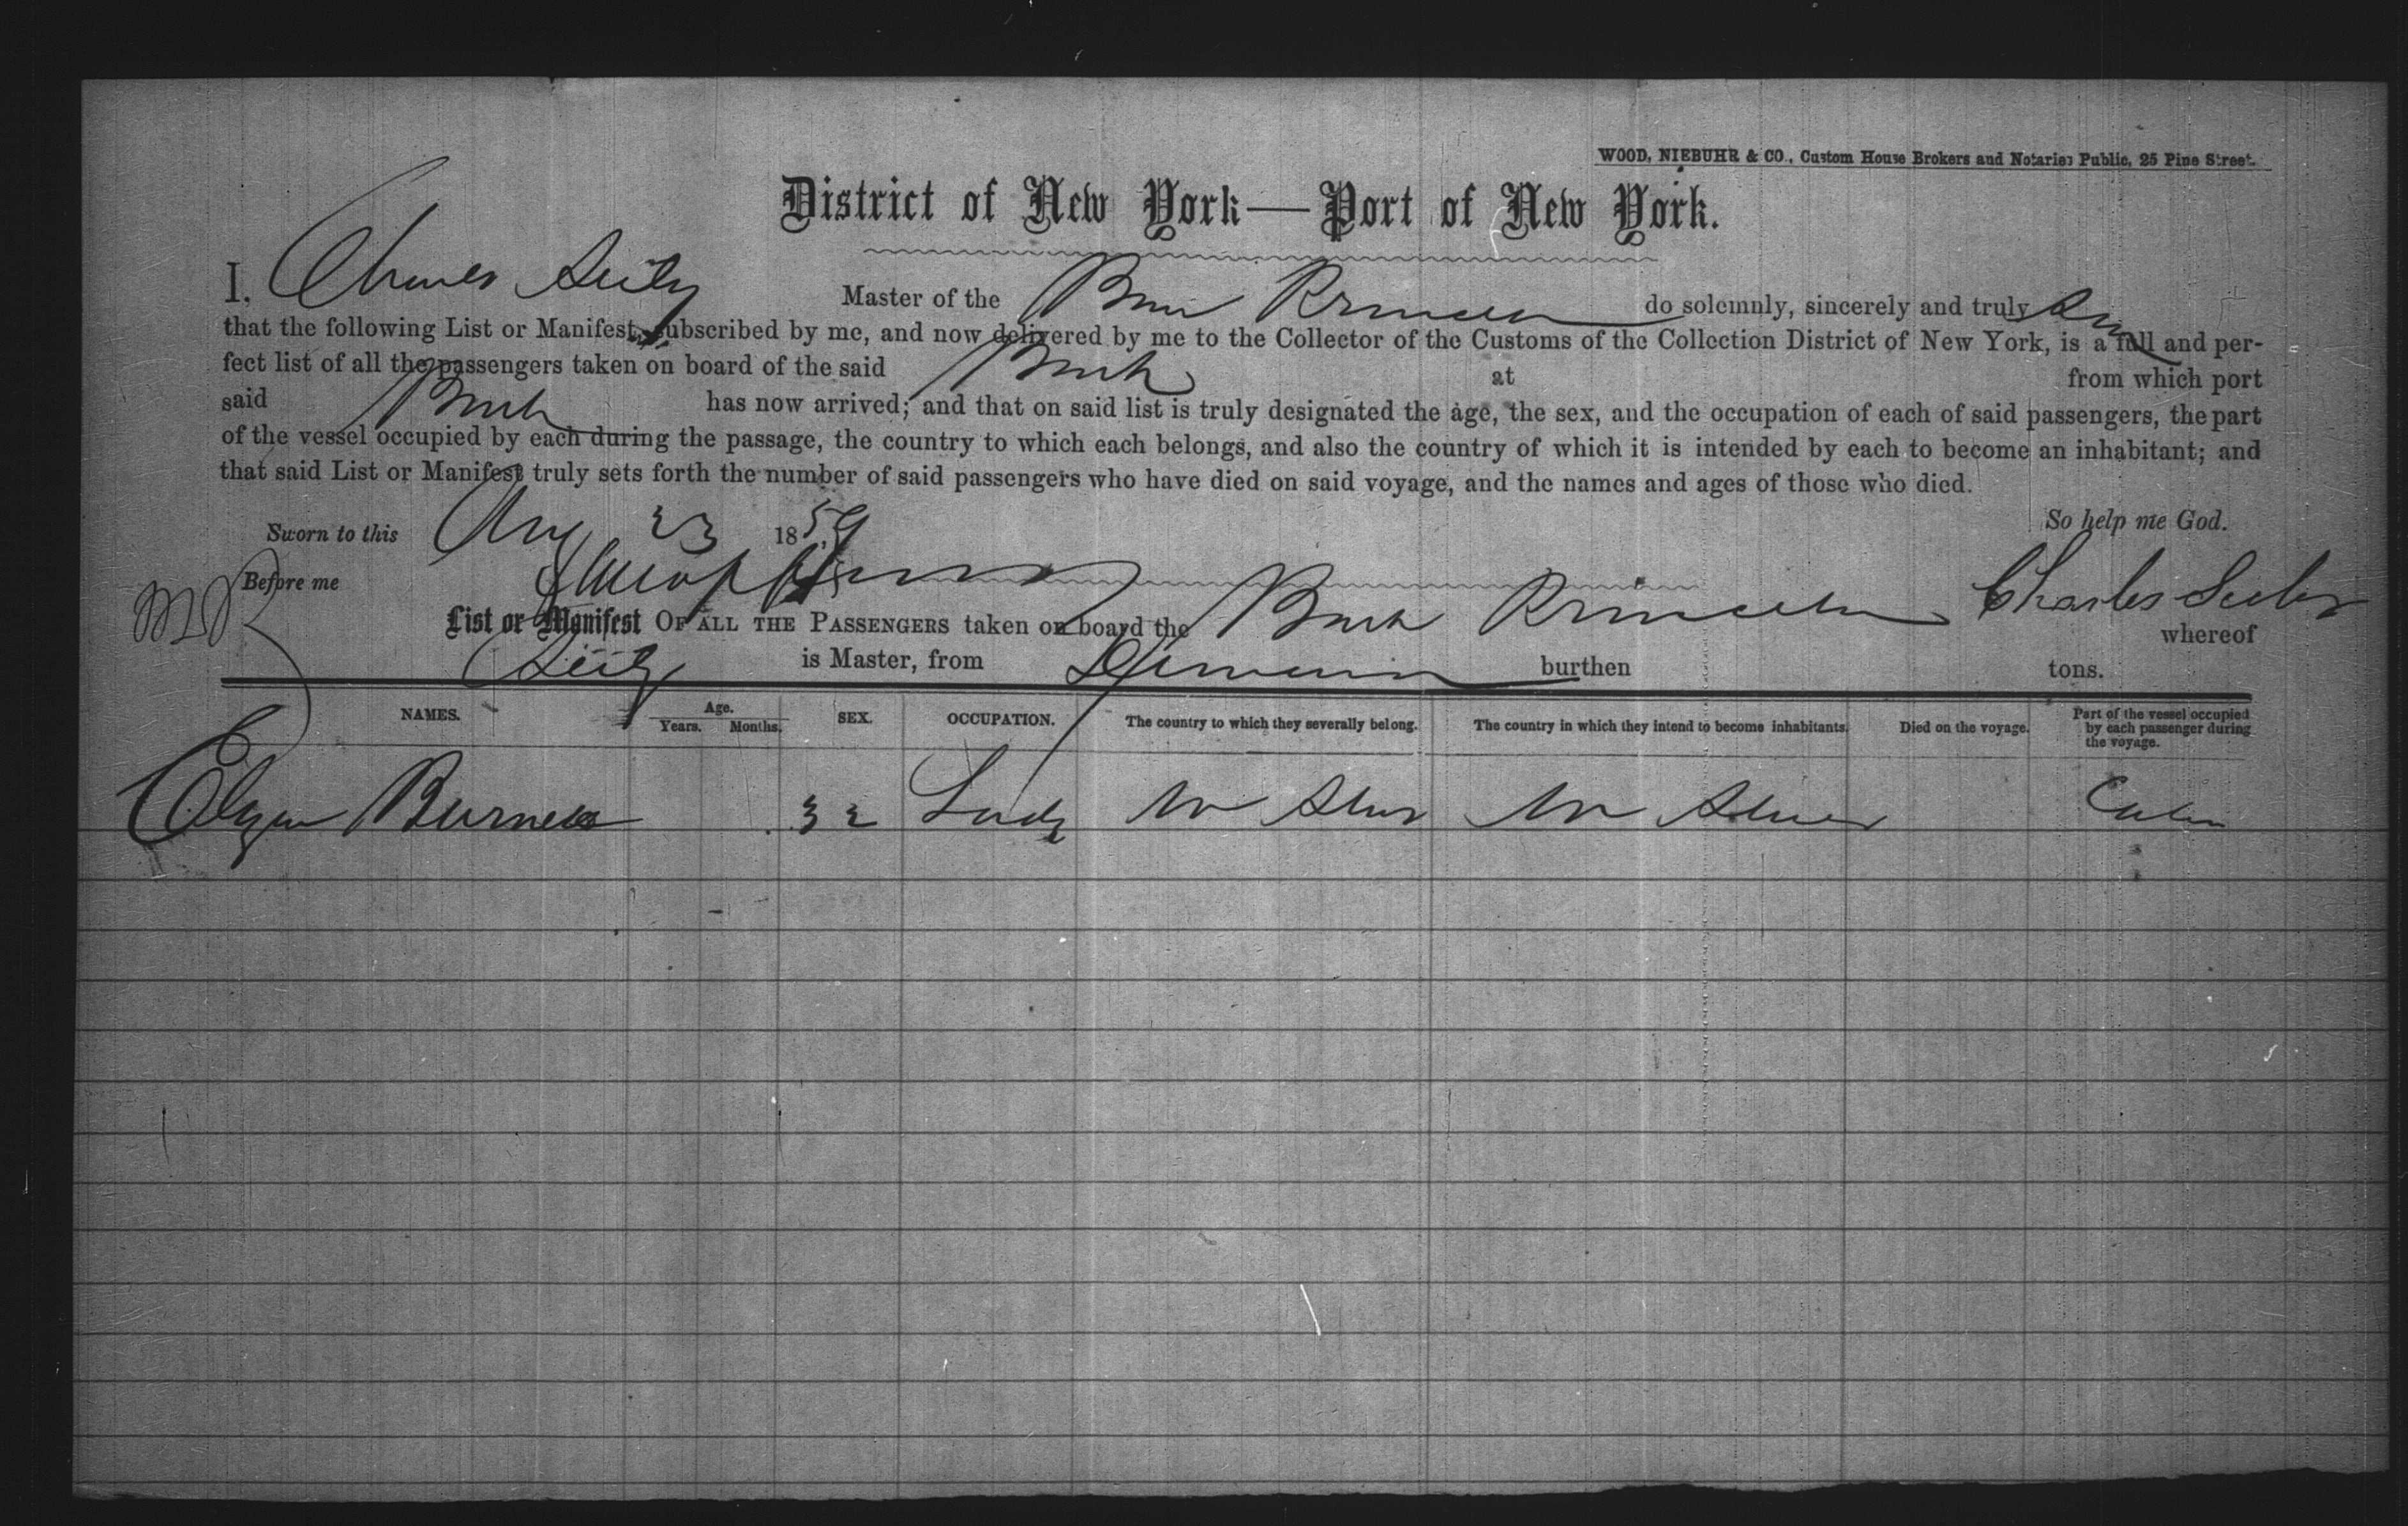 WOOD, NIEBUHR & CO., Custom House Brokers and Notaries Public, 25 Pine Street.
District of New York—Port of New York.
I, Charles Seily Master of the Princeton do solemnly, sincerely and truly
that the following List or Manifest, subscribed by me, and now delivered by me to the Collector of the Customs of the Collection District of New York, is a full and per-
fect list of all the passengers taken on board of the said Bark at from which port
said Bark has now arrived; and that on said list is truly designated the age, the sex, and the occupation of each of said passengers, the part
of the vessel occupied by each during the passage, the country to which each belongs, and also the country of which it is intended by each to become an inhabitant; and
that said List or Manifest truly sets forth the number of said passengers who have died on said voyage, and the names and ages of those who died.
Sworn to this Aug 23 1859 So help me God.
Before me Charles
List or Manifest OF ALL THE PASSENGERS taken on board the Bark whereof
is Master, from burthen tons.
NAMES. Age. Years. Months. SEX. OCCUPATION. The country to which they severally belong. The country in which they intend to become inhabitants. Died on the voyage. Part of the vessel occupied by each passenger during the voyage.
32 Lady